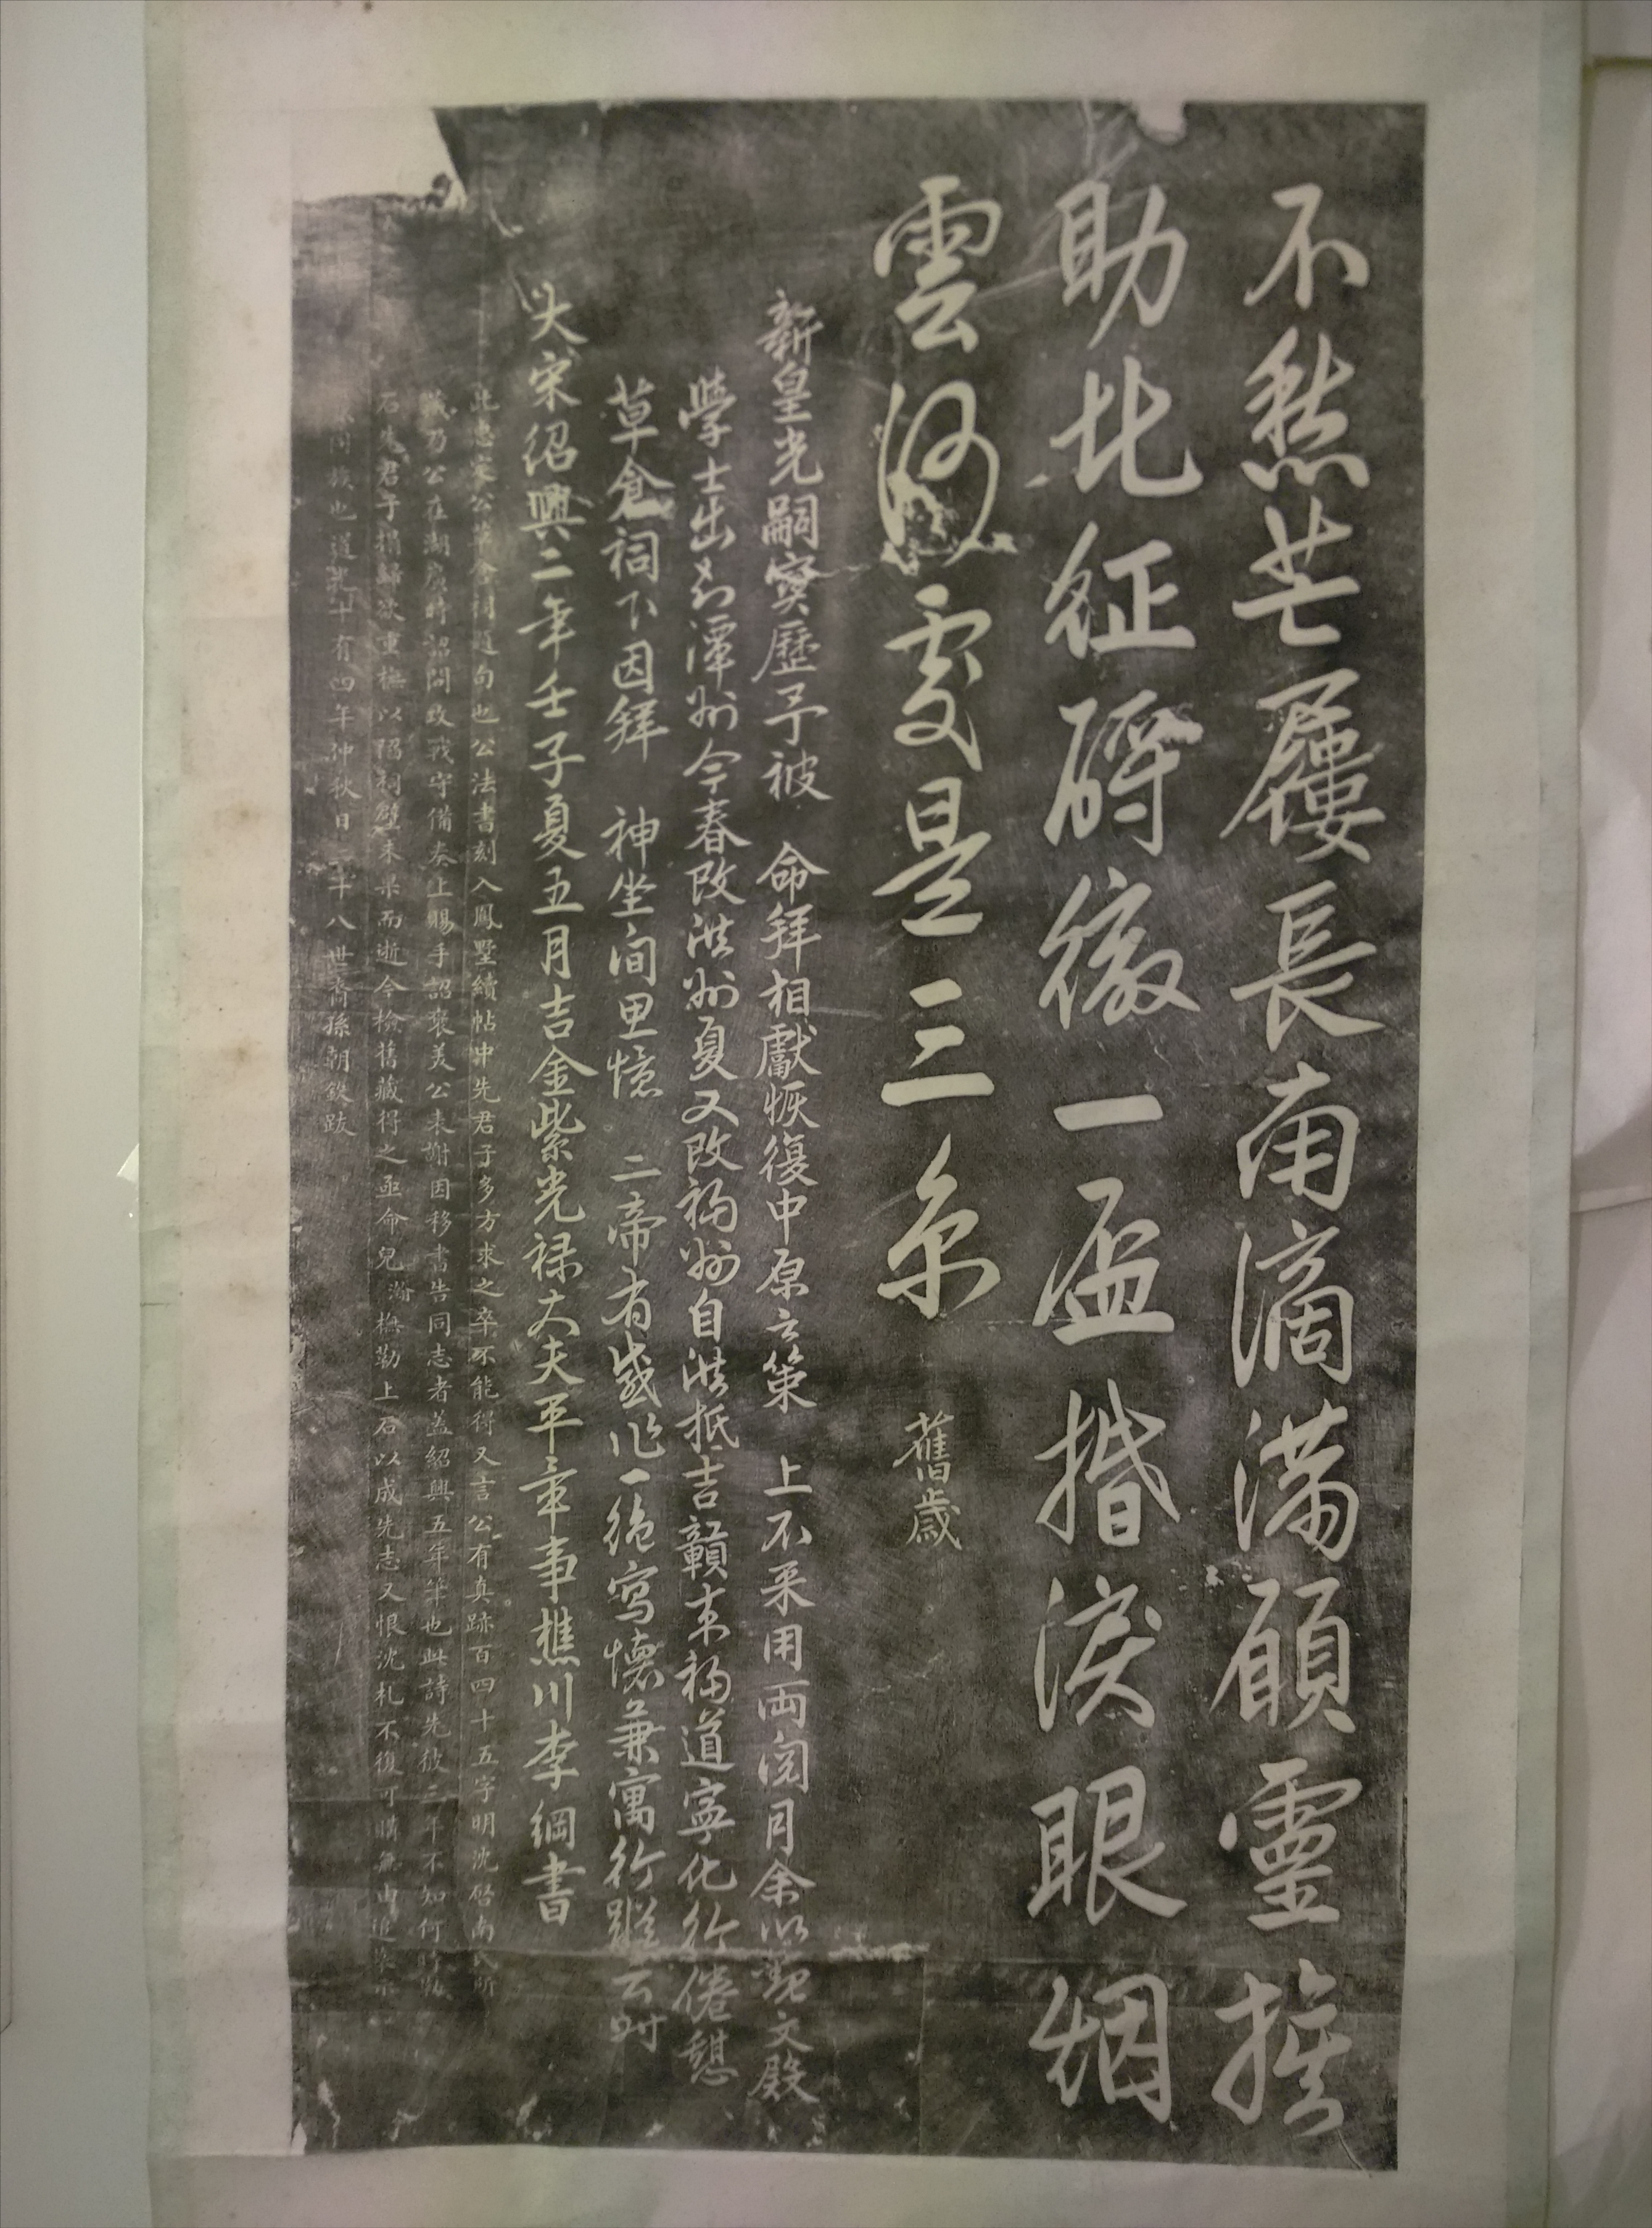 不愁芒屨長南滴滿願靈旂
助北征酹徹一盃揩淚眼烟
雲何處是三京
舊歲
新皇光嗣寶歷予被 命拜相獻恢復中原之策 上不采用兩閱月余以觀文殿
學士出知潭州今春改洪州夏又改福州自洪抵吉贛來福道寧化行倦憩
草倉祠下因拜 神坐間思憶 二帝有感作一絕寫懷兼寓行蹤云時
大宋紹興二年壬子夏五月吉金紫光祿大夫平章事樵川李綱書
此忠定公草倉祠題句也公法書刻入鳳墅續帖中先君子多方求之卒不能得又言公有真跡百四十五字明沈啓南氏所
藏乃公在湖廣時詔問攻戰守備奏上賜手詔褒美公未謝因移書告同志者蓋紹興五年筆也此詩先彼三年不知何時勒
石先君子搨歸欲重橅以嵌祠壁未果而逝今檢舊藏得之亟命兒瀚橅勒上石以成先志又恨沈札不復可購無由追
同族也道光十有四年仲秋日二十八世裔孫朝欽跋